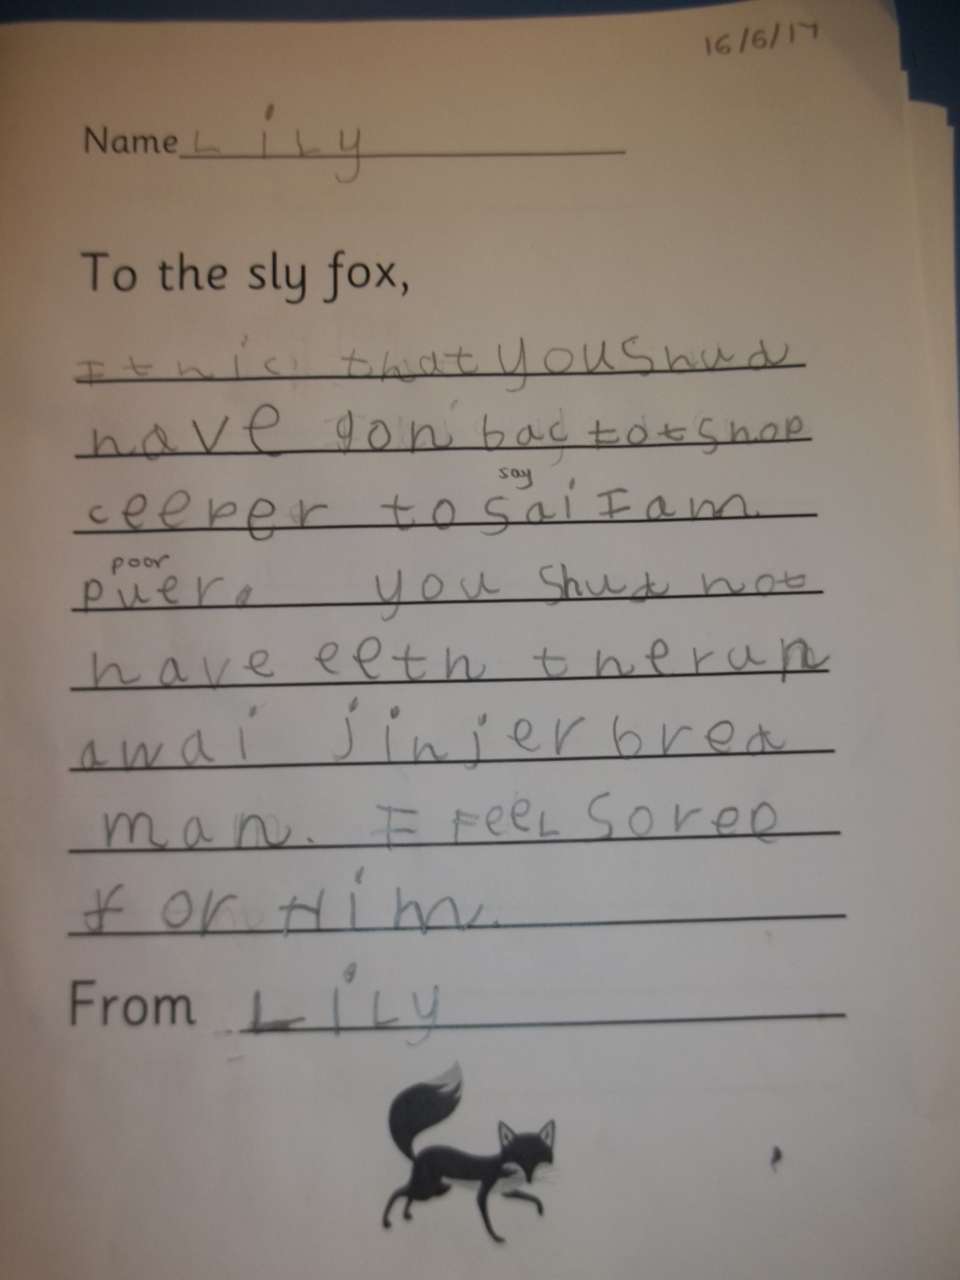 16/6/17
Name LiLy
To the sly fox,
I thic that you Shud
have gon bac to t shop
say
ceeper to Sai I am
poor
puer. you Shud not
have eeth the run
awai jinjer bred
man. I FEEL Soree
for Him.
From LiLy